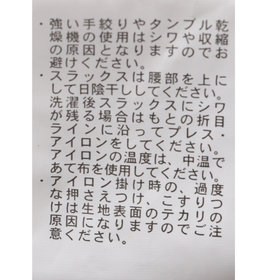 ・強い手絞りやタンブル乾
燥機の使用はシワや収縮
の原因となりますのでお
避けください。
・スラックスは腰部を上に
して日陰干ししてください。
洗濯後スラックスにシワ
が残る場合はもとの折目
ラインに沿ってプレス・
アイロンをしてください。
アイロンの温度は、中温で
あて布を使用してください。
・アイロン掛け時の、過度
な押さえつけ、こすりつ
けは生地表面のテカリの
原因になりますのでご注
意ください。